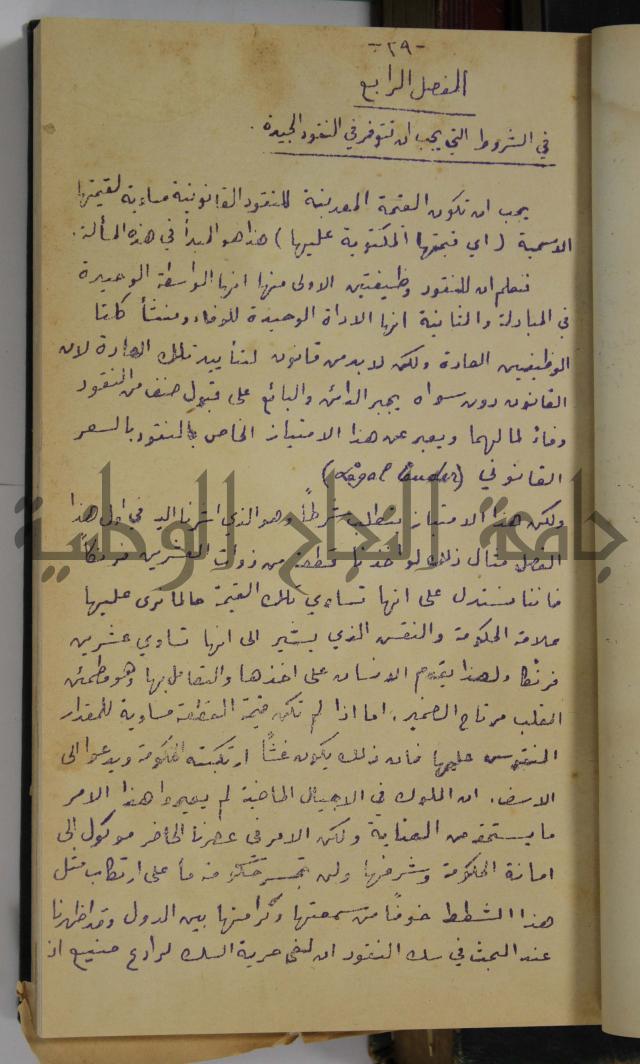 -٢٩-
الفصل الرابع
في الشروط التي يجب ان تتوفر في النقود الجيدة .
يجب ان تكون القيمة المعدنية للنقود القانونية مساوية لقيمتها
الاسمية ( اي قيمتها المكتوبة عليها ) هذا هو المبدأ في هذه المسألة .
فنعلم ان للنقود وظيفتين الاولى منها انها الواسطة الوحيدة
في المبادلة والثانية انها الاداة الوحيدة للوفاء ومنشأ كلتا
الوظيفتين العادة ولكن لا بد من قانون لتأييد تلك العادة لان
القانون دون سواه يجبر الدائن والبائع على قبول صنف من النقود
وفاءً لما لهما ويعبر عن هذا الامتياز الخاص بالنقود بالسعر
القانوني (Legal tender)
ولكن هذا الامتياز يتطلب شرطاً وهو الذي اشرنا اليه في اول هذا
الفصل مثال ذلك لو اخذنا قطعة من ذوات العشرين فرنكاً
فاننا نستدل على انها تساوي تلك القيمة حالما نرى عليها
علامة الحكومة والنقش الذي يشير الى انها تساوي عشرين
فرنكا ولهذا يقدم الانسان على اخذها والتعامل بها وهو مطمئن
القلب مرتاح الضمير . اما اذا لم تكن قيمة القطعة مساوية للمقدار
المنقوش عليها فان ذلك يكون غشاً ارتكبته الحكومة ويدعو الى
الاسف . ان الملوك في الاجيال الماضية لم يعيروا هذا الامر
ما يستحقه من العناية ولكن الامر في عصرنا الحاضر موكول الى
امانة الحكومة وشرفها ولن تجسر حكومة ما على ارتكاب مثل
هذا الشطط خوفاً من سمعتها وكرامتها بين الدول وقد اظهرنا
عند البحث في سك النقود ان لفي حرية السك لرادع منيع اذ
جامعة النجاح الوطنية